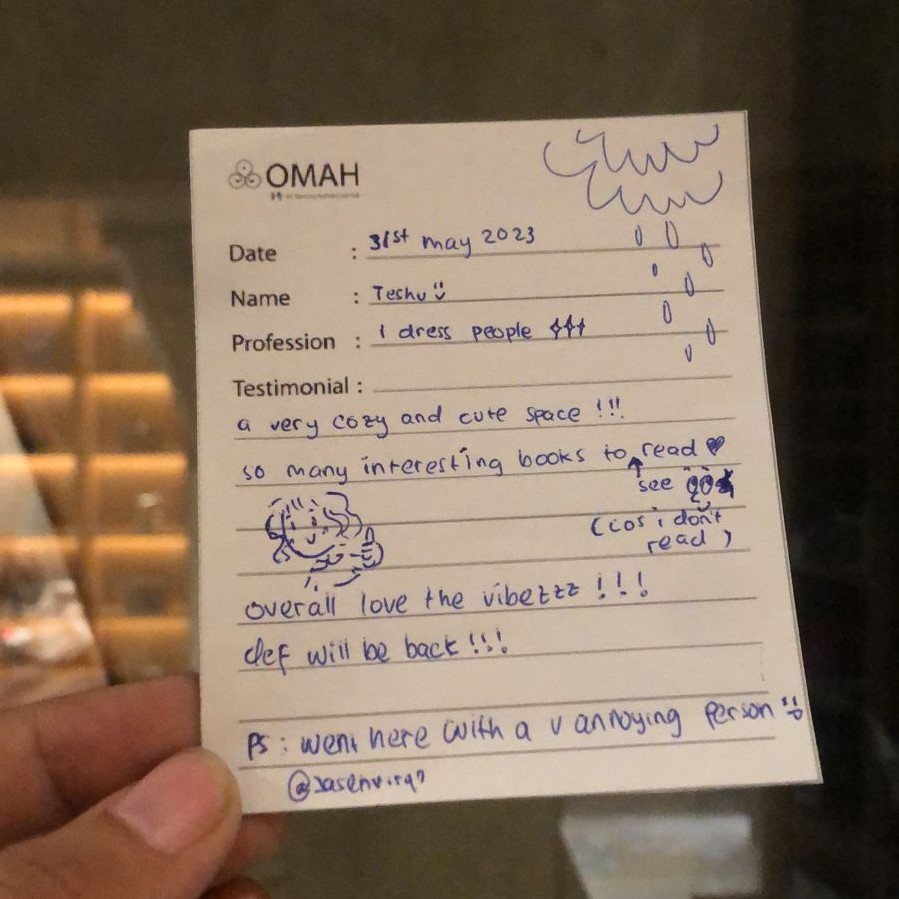 OMAH
Date : 31st may 2023
Name : Teshu
Profession : I dress people
Testimonial :
a very cozy and cute space !!!
so many interesting books to read
see
(cos i don't
read )
overall love the vibezzz !!!
def will be back !!!
Ps : went here with a v annoying person